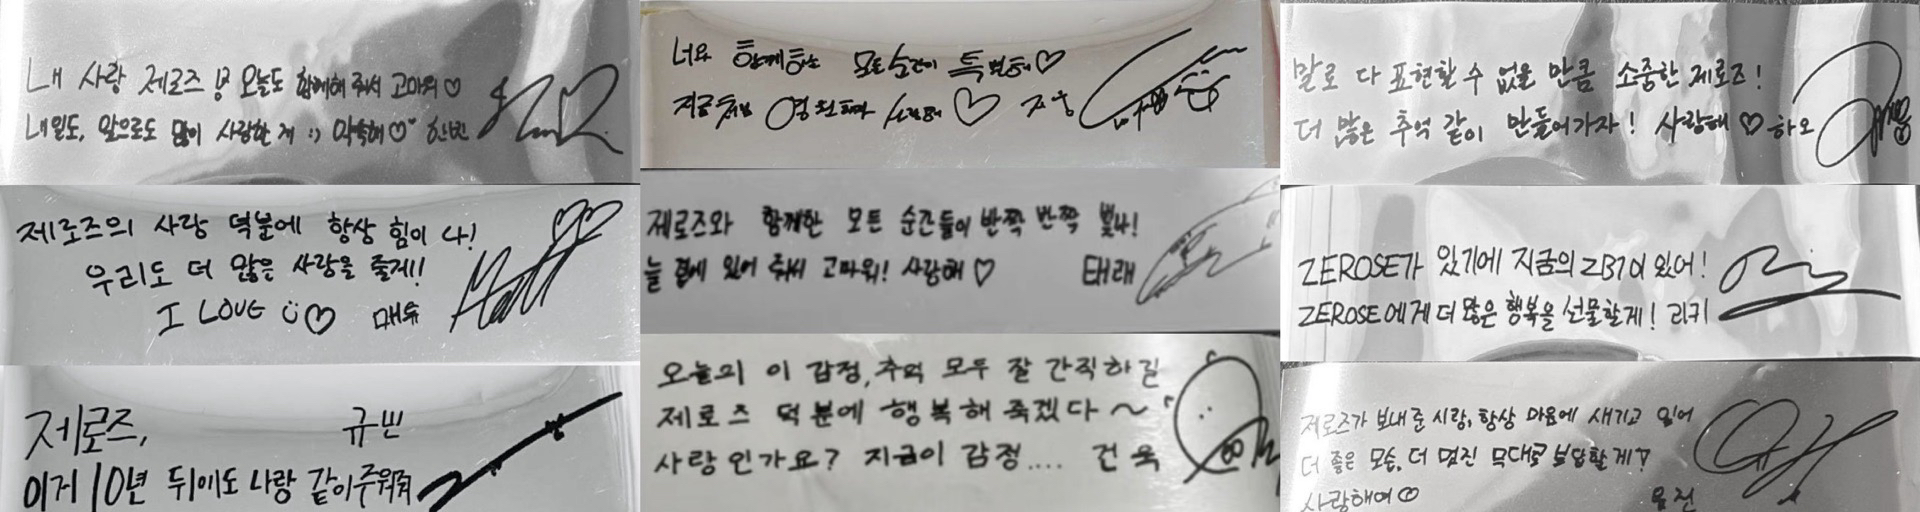 내 사랑 제로즈 오늘도 함께해 줘서 고마워♡
내일도, 앞으로도 많이 사랑할게 :) 약속해♡ 한빈
너와 함께하는 모든 순간이 특별해♡
지금처럼 영원히 사랑해♡ 지웅
말로 다 표현할 수 없을 만큼 소중한 제로즈!
더 많은 추억 같이 만들어가자! 사랑해♡ 하오
제로즈의 사랑 덕분에 항상 힘이 나!
우리도 더 많은 사랑을 줄게!!
I LOVE ♡ 매튜
제로즈와 함께한 모든 순간들이 반짝 반짝 빛나!
늘 곁에 있어 줘서 고마워! 사랑해♡ 태래
ZEROSE가 있기에 지금의 ZB1이 있어!
ZEROSE에게 더 많은 행복을 선물할게! 리키
제로즈, 규빈
이거 10년 뒤에도 나랑 같이
오늘의 이 감정, 추억 모두 잘 간직하길
제로즈 덕분에 행복해 죽겠다~
사랑인가요? 지금이 감정.... 건욱
제로즈가 보내준 사랑, 항상 마음에 새기고 있어
더 좋은 모습, 더 멋진 무대로 보답할게!
사랑해여♡ 유진